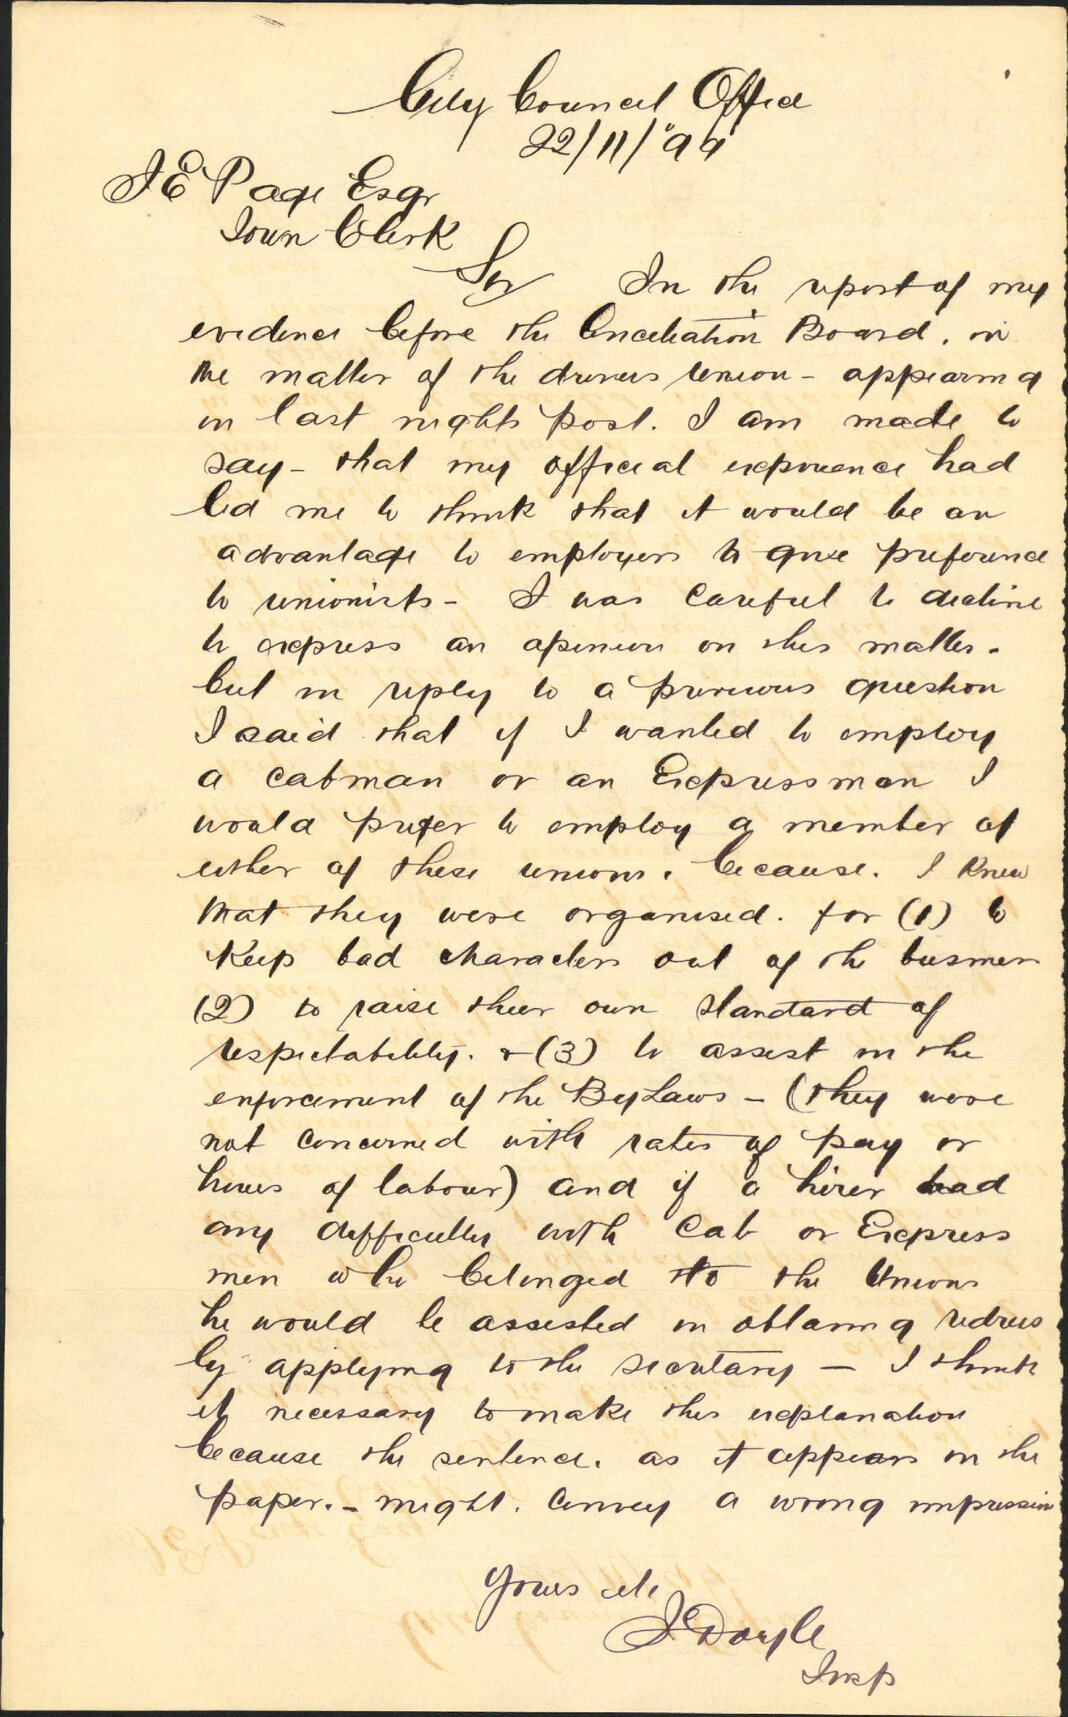 City Council Office
22/11/99
J E Page Esqr
Town Clerk
Sir In the report of my
evidence before the Conciliation Board, in
the matter of the drivers union - appearing
in last nights post. I am made to
say - that my official experience had
led me to think that it would be an
advantage to employers to give preference
to unionists - I was careful to decline
to express an opinion on this matter.
but in reply to a previous question
I said that if I wanted to employ
a cabman or an Expressman I
would prefer to employ a member of
either of these unions, because. I knew
that they were organised. for (1) to
keep bad characters out of the business
(2) to raise their own standard of
respectability. + (3) to assist in the
enforcement of the By Laws - (they were
not concerned with rates of pay or
hours of labour) and if a hirer had
any difficulty with Cab or Express
men who belonged to the Unions
he would be assisted in obtaining redress
by applying to the secretary - I think
it necessary to make this explanation
because the sentence, as it appears in the
paper. - might. convey a wrong impression
Yours etc
J Doyle
Insp